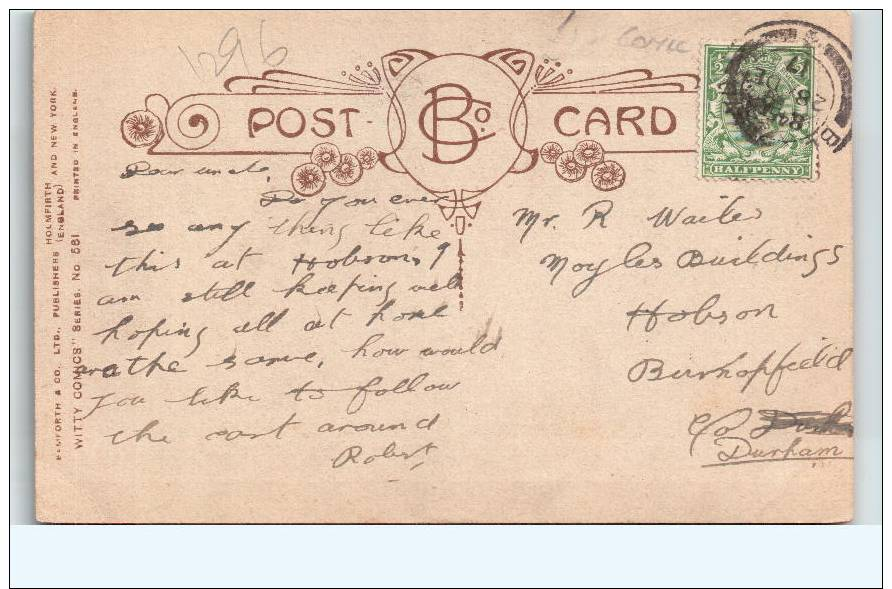 1296
COMIC
POST CARD
BCo.
HALFPENNY
BAMFORTH & CO., LTD., PUBLISHERS HOLMFIRTH (ENGLAND) AND NEW YORK.
WITTY COMICS" SERIES. No 581 PRINTED IN ENGLAND.
Dear uncle,
Do you ever
see any thing like
this at Hobsons?
am still keeping well
hoping all at home
are the same, how would
you like to follow
the cart around
Robert
Mr. R Waites
Moyles Buildings
Hobson
Burnopfield
C/o
Durham